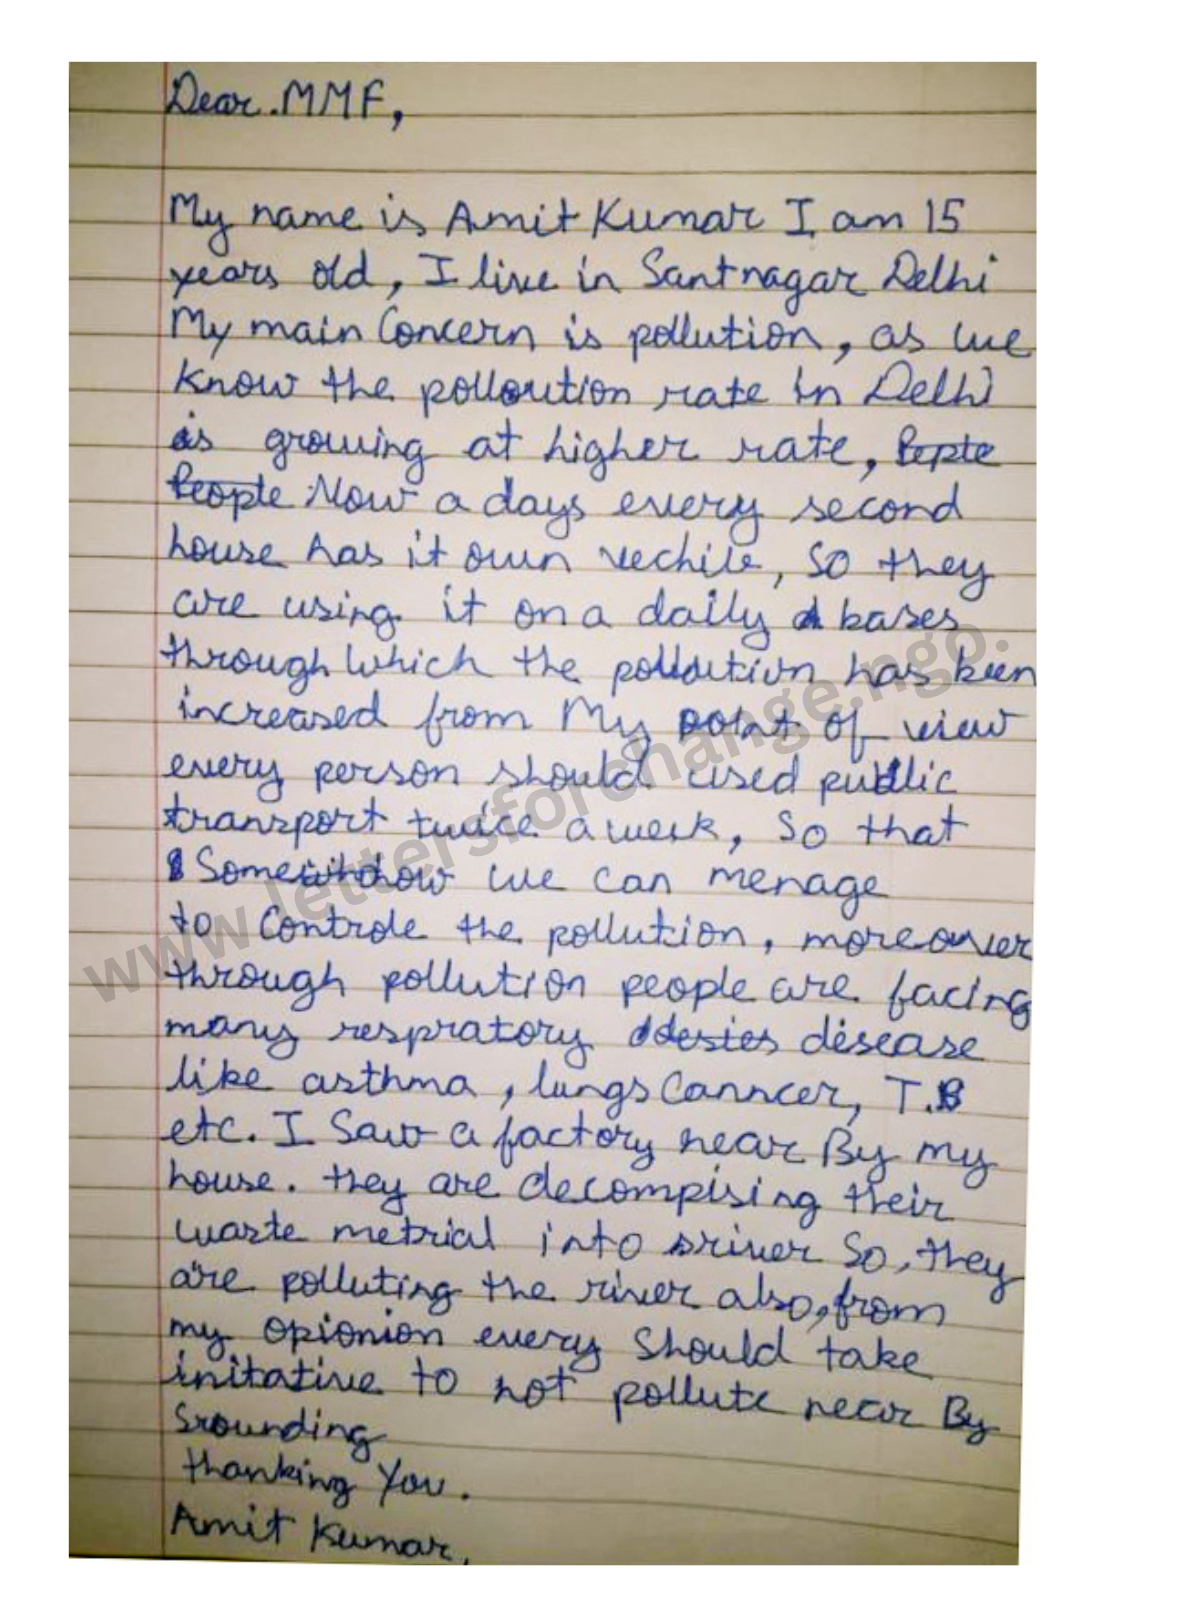 Dear. MMF,
My name is Amit Kumar I am 15
years old, I live in Santnagar Delhi
My main Concern is pollution, as we
Know the polloution rate in Delhi
is growing at higher rate, Pepte
People Now a days every second
house has it own vechile, So they
are using it on a daily bases
through which the polloution has been
increased from My point of view
every person should used public
transport twice a week, So that
Somewhow we can menage
to Controle the pollution, moreover
through pollution people are facing
many respratory desies disease
like asthma, lungs Canncer, T.B
etc. I Saw a factory near By my
house. they are decompising their
waste metrial into river So, they
are polluting the river also, from
my opionion every Should take
initative to not pollute near By
Srounding
thanking You.
Amit Kumar.
www.lettersforchange.ngo.